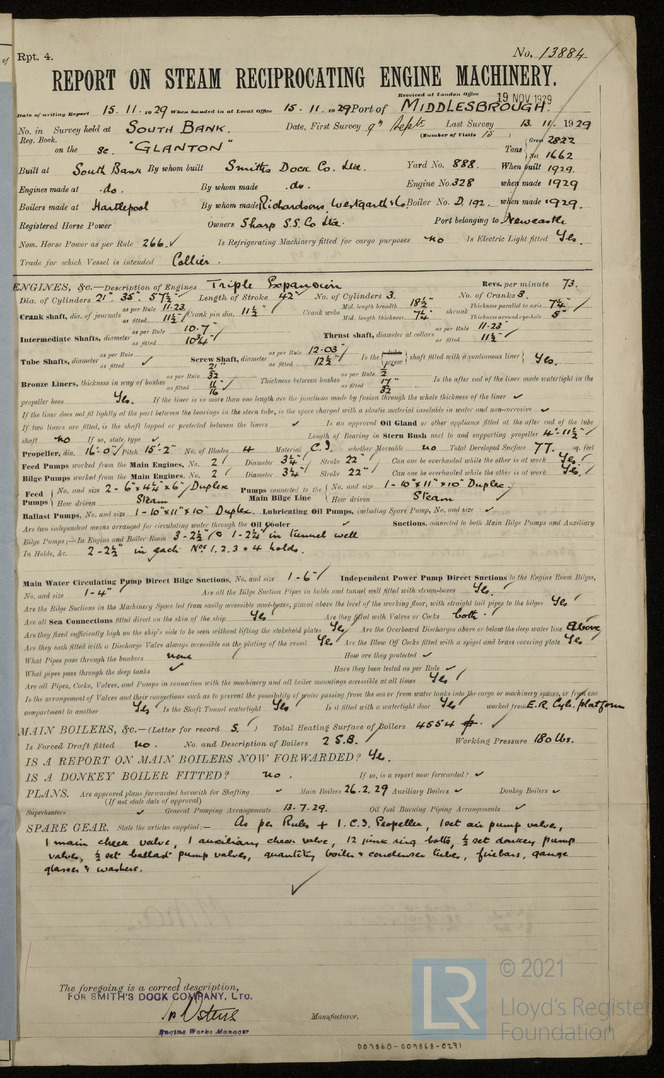 Rpt. 4.
No. 13884
REPORT ON STEAM RECIPROCATING ENGINE MACHINERY.
Received at London Office 19 NOV 1929
Date of writing Report 15. 11. 1929 When handed in at Local Office 15. 11. 1929 Port of MIDDLESBROUGH.
No. in Survey held at SOUTH BANK. Date, First Survey 9th Sept. Last Survey 13. 11. 1929
Reg. Book. (Number of Visits 15)
on the Sc. "GLANTON" Tons Gross 2822 Net 1662
Built at South Bank By whom built Smiths Dock Co. Ltd. Yard No. 888. When built 1929.
Engines made at do. By whom made do. Engine No. 328 when made 1929
Boilers made at Hartlepool By whom made Richardsons, Westgarth & Co Boiler No. D.192. when made 1929.
Registered Horse Power Owners Sharp S.S. Co Ltd. Port belonging to Newcastle
Nom. Horse Power as per Rule 266. ✓ Is Refrigerating Machinery fitted for cargo purposes no Is Electric Light fitted Yes.
Trade for which Vessel is intended Collier.
ENGINES, &c.—Description of Engines Triple Expansion Revs. per minute 73.
Dia. of Cylinders 21" 35" 57½" Length of Stroke 42" No. of Cylinders 3. No. of Cranks 3.
Crank shaft, dia. of journals as per Rule 11.23 as fitted 11½" Crank pin dia. 11½" Crank webs Mid. length breadth 18½" Mid. length thickness 7¼" shrunk Thickness parallel to axis 7¼" Thickness around eye-hole 5"
Intermediate Shafts, diameter as per Rule 10.7" as fitted 10¾" Thrust shaft, diameter at collars as per Rule 11.23" as fitted 11½"
Tube Shafts, diameter as per Rule as fitted ✓ Screw Shaft, diameter as per Rule 12.03" as fitted 12½" Is the tube screw shaft fitted with a continuous liner Yes.
Bronze Liners, thickness in way of bushes as per Rule 21/32" as fitted 11/16" Thickness between bushes as per Rule as fitted 17/32" Is the after end of the liner made watertight in the
propeller boss Yes. If the liner is in more than one length are the junctions made by fusion through the whole thickness of the liner ✓
If the liner does not fit tightly at the part between the bearings in the stern tube, is the space charged with a plastic material insoluble in water and non-corrosive ✓
If two liners are fitted, is the shaft lapped or protected between the liners ✓ Is an approved Oil Gland or other appliance fitted at the after end of the tube
shaft no If so, state type ✓ Length of Bearing in Stern Bush next to and supporting propeller 4'-11½"
Propeller, dia. 16'-0" Pitch 15'-2" No. of Blades 4 Material C.I. whether Moveable no Total Developed Surface 77. sq. feet
Feed Pumps worked from the Main Engines, No. 2 Diameter 3¼" Stroke 22" Can one be overhauled while the other is at work Yes.
Bilge Pumps worked from the Main Engines, No. 2 Diameter 3¾" Stroke 22" Can one be overhauled while the other is at work Yes.
Feed Pumps No. and size 2-6"x4¼"x6" Duplex Pumps connected to the Main Bilge Line No. and size 1-10"x11"x10" Duplex.
How driven Steam How driven Steam
Ballast Pumps, No. and size 1-10"x11"x10" Duplex. Lubricating Oil Pumps, including Spare Pump, No. and size ✓
Are two independent means arranged for circulating water through the Oil Cooler ✓ Suctions, connected to both Main Bilge Pumps and Auxiliary
Bilge Pumps;—In Engine and Boiler Room 3-2½" 1-2¼" in tunnel well
In Holds, &c. 2-2½" in each Nos 1. 2. 3 & 4 holds.
Main Water Circulating Pump Direct Bilge Suctions, No. and size 1-6" Independent Power Pump Direct Suctions to the Engine Room Bilges,
No. and size 1-4" Are all the Bilge Suction Pipes in holds and tunnel well fitted with strum-boxes Yes.
Are the Bilge Suctions in the Machinery Space led from easily accessible mud-boxes, placed above the level of the working floor, with straight tail pipes to the bilges Yes
Are all Sea Connections fitted direct on the skin of the ship Yes Are they fitted with Valves or Cocks both.
Are they fixed sufficiently high on the ship's side to be seen without lifting the stokehold plates Yes Are the Overboard Discharges above or below the deep water line Above
Are they each fitted with a Discharge Valve always accessible on the plating of the vessel Yes Are the Blow Off Cocks fitted with a spigot and brass covering plate Yes
What Pipes pass through the bunkers none How are they protected ✓
What pipes pass through the deep tanks ✓ Have they been tested as per Rule ✓
Are all Pipes, Cocks, Valves, and Pumps in connection with the machinery and all boiler mountings accessible at all times Yes
Is the arrangement of Valves and their connections such as to prevent the possibility of water passing from the sea or from water tanks into the cargo or machinery spaces, or from one
compartment to another Yes Is the Shaft Tunnel watertight Yes Is it fitted with a watertight door Yes worked from E.R. Cyl. platform
MAIN BOILERS, &c.—(Letter for record S. ) Total Heating Surface of Boilers 4554 ✓
Is Forced Draft fitted no. No. and Description of Boilers 2 S.B. Working Pressure 180 lbs.
IS A REPORT ON MAIN BOILERS NOW FORWARDED? Yes.
IS A DONKEY BOILER FITTED? no. If so, is a report now forwarded? ✓
PLANS. Are approved plans forwarded herewith for Shafting ✓ Main Boilers 26.2.29 Auxiliary Boilers ✓ Donkey Boilers ✓
(If not state date of approval)
Superheaters ✓ General Pumping Arrangements 13.7.29. Oil fuel Burning Piping Arrangements ✓
SPARE GEAR. State the articles supplied:— As per Rules + 1. C.I. Propeller, 1 set air pump valves,
1 main check valve, 1 auxiliary check valve, 12 junk ring bolts, ½ set donkey pump
valves, ½ set ballast pump valves, quantity boiler & condenser tubes, firebars, gauge
glasses & washers.
✓
The foregoing is a correct description,
FOR SMITH'S DOCK COMPANY, LTD.
Manufacturer.
Engine Works Manager
LR
© 2021
Lloyd's Register
Foundation
007360-007368-0271